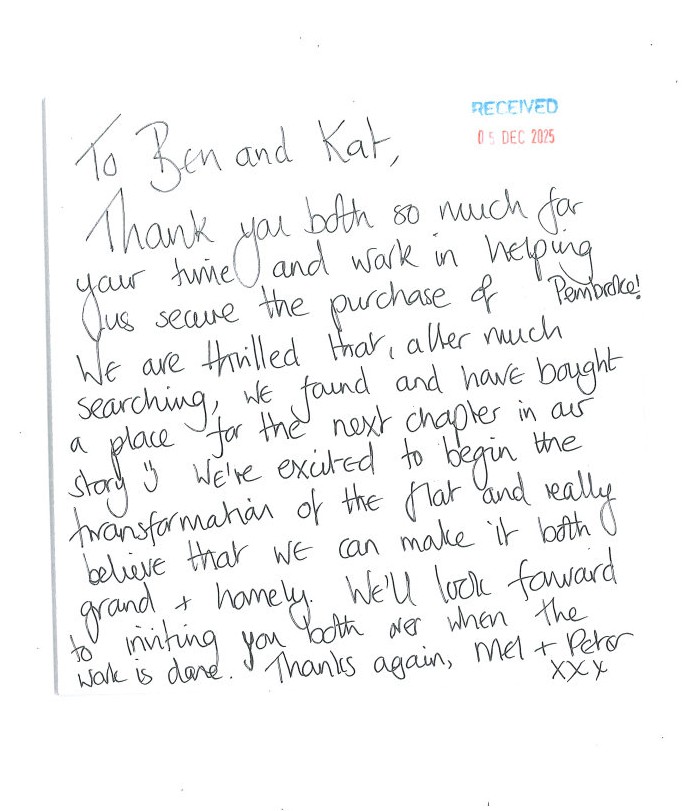 RECEIVED
05 DEC 2025
To Ben and Kat,
Thank you both so much for
your time and work in helping
us secure the purchase of Pembroke!
We are thrilled that, after much
searching, we found and have bought
a place for the next chapter in our
story :) We're excited to begin the
transformation of the flat and really
believe that we can make it both
grand + homely. We'll look forward
to inviting you both over when the
work is done. Thanks again, Mel + Peter
xxx